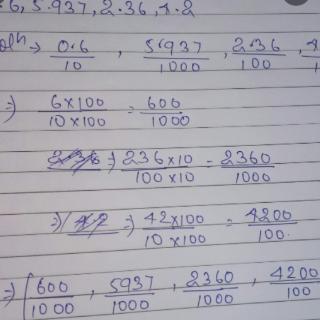 .6, 5.937, 2.36, 4.2
olⁿ → 0.6/10 , 5.937/1000 , 2.36/100 ,
⇒) 6×100/10×100 = 600/1000
⇒ 236×10/100×10 = 2360/1000
⇒) ⇒) 42×100/10×100 = 4200/100.
⇒ [600/1000 , 5937/1000 , 2360/1000 , 4200/100